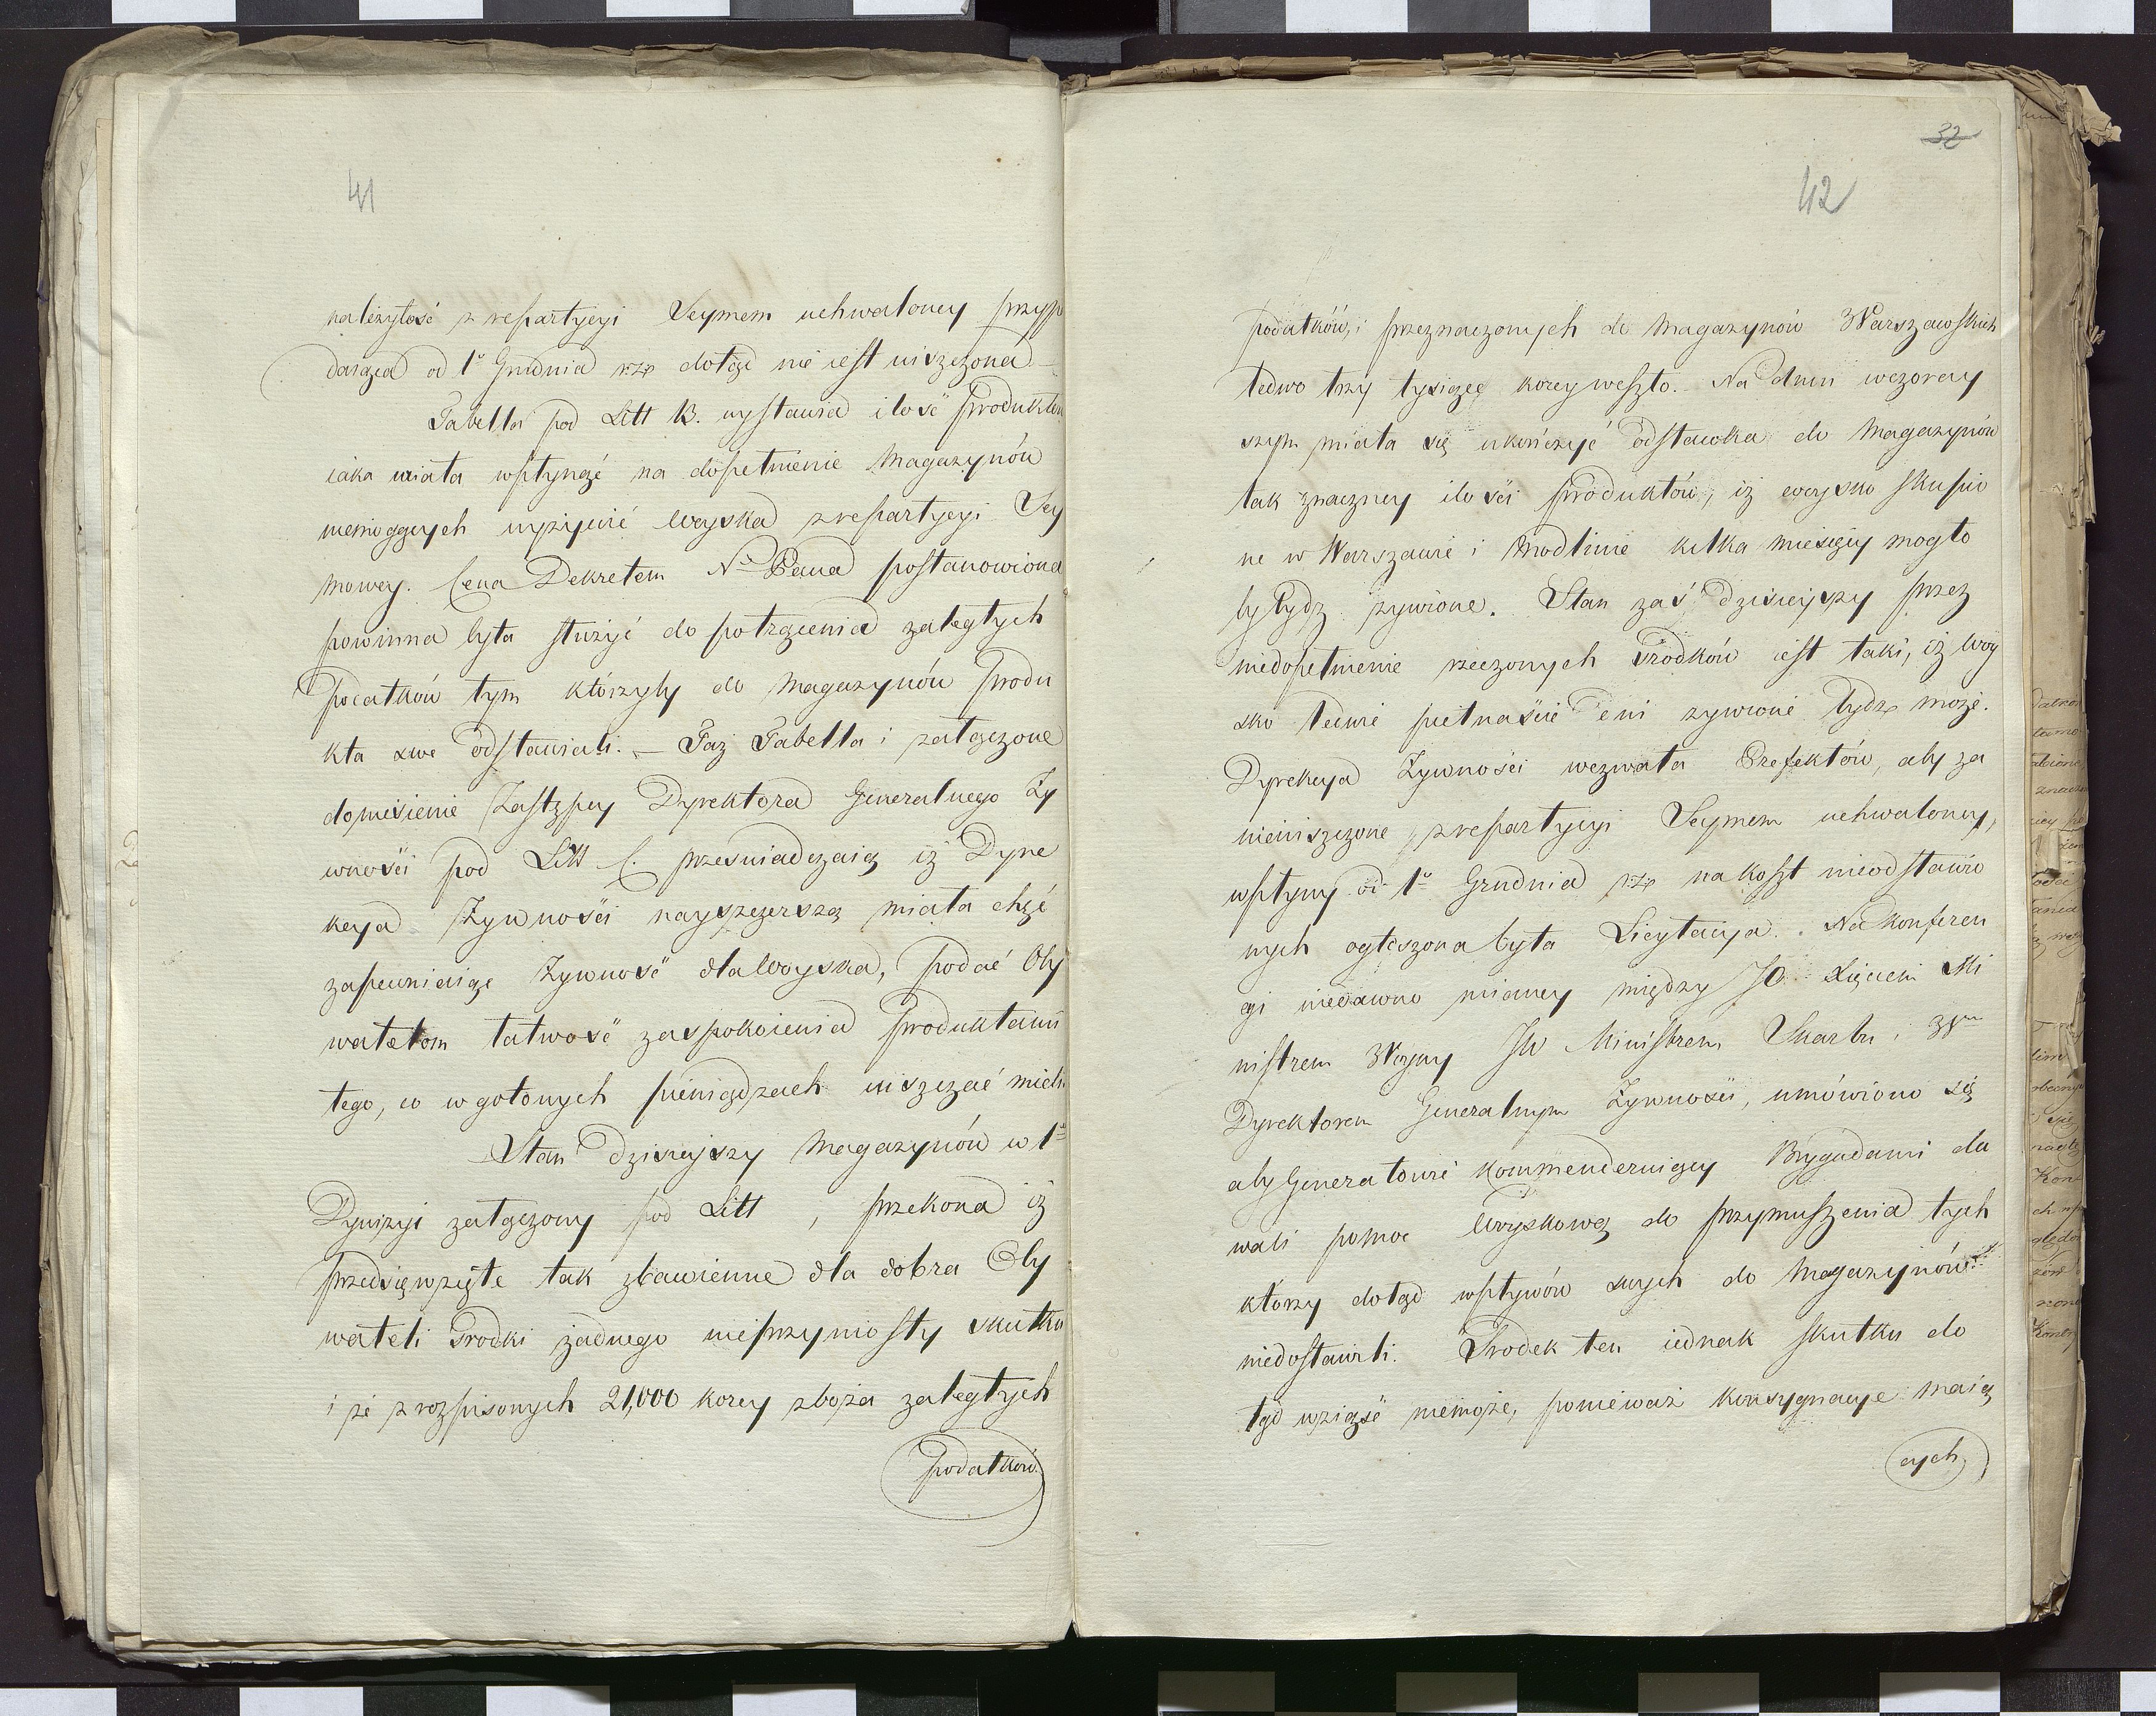 41
należytość z repartycyi Seymem uchwaloney przypa
daiąca od 1o Grudnia r.z. dotąd nie iest uiszczona —
Tabella pod Litt B. wystawia ilość Produktów
iaka miała wpłynąć na dopełnienie Magazynów
niemogących wyżywić woyska z repartycyi Sey
mowey. Cena Dekretem Nº Pana postanowiona
powinna była służyć do potrącenia zaległych
podatków tym którzyby do Magazynów Produ
kta swe odstawiali. — Taż Tabella i załączone
doniesienie Zastępcy Dyrektora Generalnego Ży
wności pod Litt C. przeświadczaią iż Dyre
kcya Żywności nayszczerszą miała chęć
zapewniaiąc Żywność dla Woyska, podać Oby
watelom łatwość zaspokoienia Produktami
tego, co w gotowych pieniądzach uiszczać mieli
Stan dzisieyszy Magazynów w 1ey
Dywizyi załączony pod Litt , przekona iż
przedsięwzięte tak zbawienne dla dobra Oby
wateli środki żadnego nieprzyniosły skutku
i że z rozpisanych 21,000 korcy zboża zaległych
Podatków.
32
42
podatków, i przeznaczonych do Magazynów Warszawskich
ledwo trzy tysiące korcy weszło. Na dniu wczoray
szym miała się ukończyć odstawka do Magazynów
tak znaczney ilości produktów, iż woysko skupio
ne w Warszawie i Modlinie kilka miesięcy mogło
by bydz żywione. Stan zaś dzisieyszy przez
niedopełnienie rzeczonych środków iest taki, iż woy
sko ledwie pietnaście dni żywione bydz może.
Dyrekcya Żywności wezwała Prefektów, aby za
nieuiszczone z repartycyi Seymem uchwaloney,
wpływy od 1o Grudnia r.z. na koszt nieodstawio
nych ogłoszona była Licytacya. Na konferen
cyi niedawno mianey między JO. Xięciem Mi
nistrem Woyny JW Ministrem Skarbu i Zym
Dyrektorem Generalnym Żywności, umówiono się
aby Generałowie kommenderuiący Brygadami da
wali pomoc Woyskową do przymuszenia tych
którzy dotąd wpływów swych do Magazynów
niedostawili. Środek ten iednak skutku do
tąd wziąść niemoże, ponieważ konsygnacye maią
cych